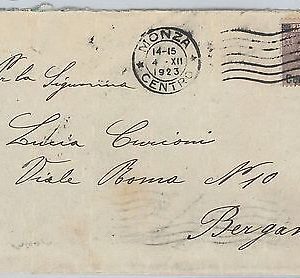 MONZA
14-15
4 · XII
1923
CENTRO
Per la Signorina
Lucia Curioni
Viale Roma N° 10
Bergam